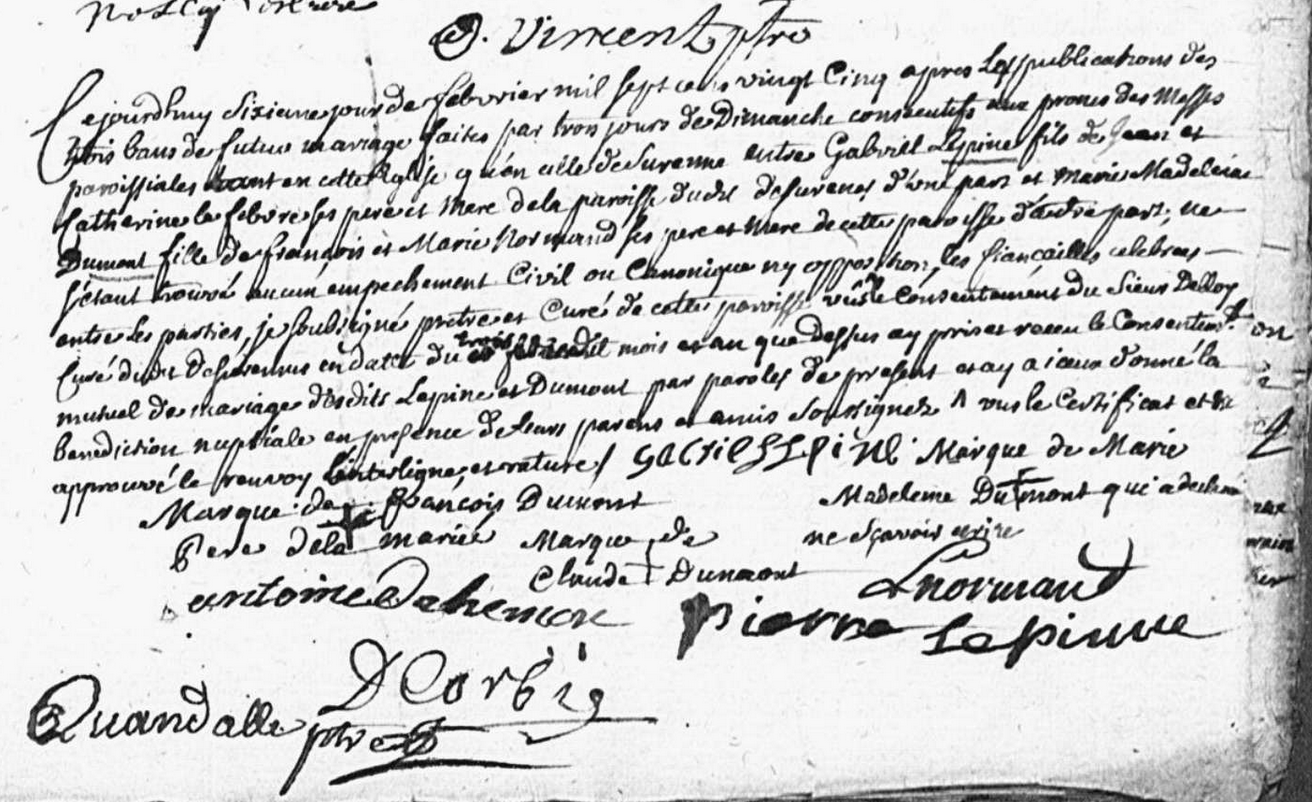 D. Vincent ptre
Cejourdhuy Sixieme jour de febvrier mil sept cens vingt Cinq apres Les publications des
trois bans de futur mariage faites par trois jours de Dimanche consecutifs aux prones des Messes
paroissiales tant en cette Eglise qu'en celle de Surenne entre Gabriel Lepine fils de Jean et
Catherine le febvre ses pere et Mere de la paroisse dudit de Surenes d'une part et Marie Madeleine
Dumont fille de François et Marie Normand ses pere et mere de cette paroisse d'autre part, ne
s'étant trouvé aucun empechement Civil ou Canonique ny opposition, les fiançailles celebrees
entre les parties, je soussigné pretre et Curé de cette paroisse vûs le Consentement du Sieur Delloy
Curé dudit de Surennes en datte du trois dudit mois et an que Dessus ay pris et receu le Consentemt
mutuel de mariage desdits Lepine et Dumont par paroles de present et ay a iceux donné la
benediction nuptiale en presence de leurs parens et amis soussignez Λ vus le Certificat et
approuvé le renvoy l'interligne et rature / GABRIEL LEPINE Marque de Marie
Marque de + François Dumont
Madeleine Du+mont qui a declaré
Pere de la mariée Marque de
ne sçavoir ecrire
Claude + Dumont
Lnormand
antoine
Pierre Lepinne
D Corbie
Quandalle ptre